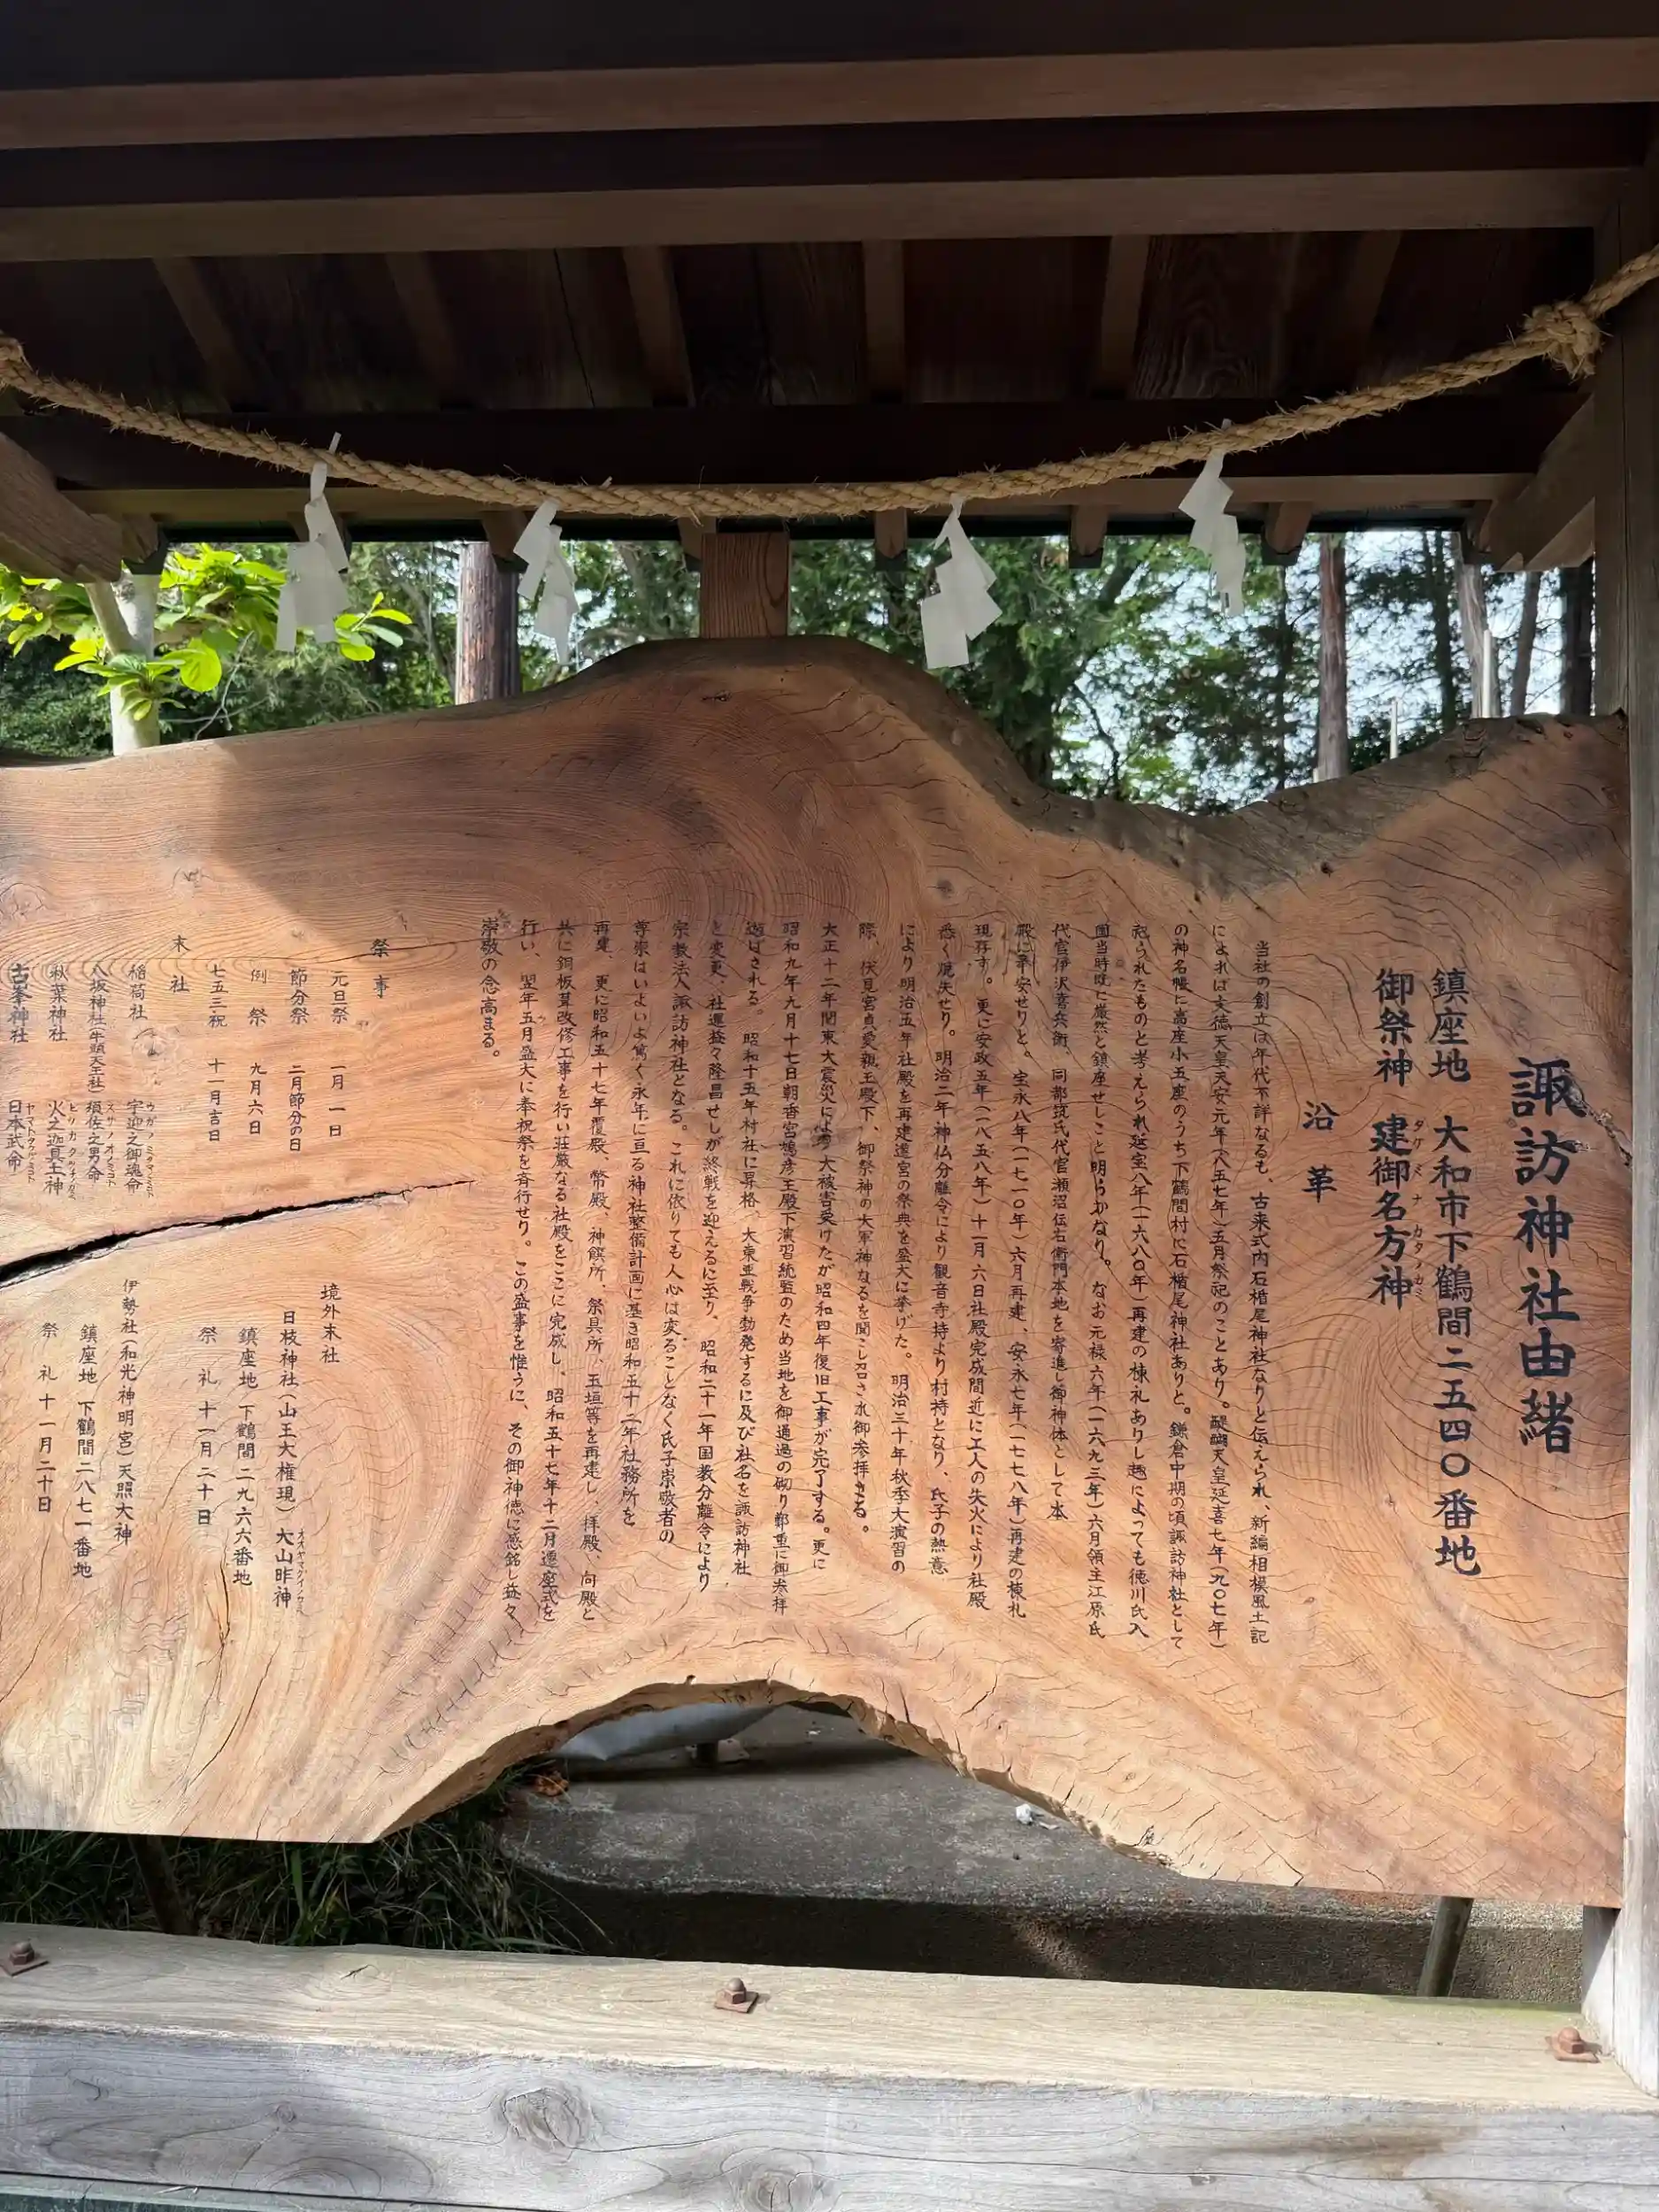 諏訪神社由緒
鎮座地 大和市下鶴間二五四〇番地
御祭神 建御名方神
タケミナカタノカミ
沿革
当社の創立は年代不詳なるも、古来式内石楯尾神社なりと伝えられ、新編相模風土記
によれば文徳天皇天安元年(八五七年)五月祭祀のことあり。醍醐天皇延喜七年(九〇七年)
の神名帳に高座小五座のうち下鶴間村に石楯尾神社ありと。鎌倉中期の頃諏訪神社として
祀られたものと考えられ延宝八年(一六八〇年)再建の棟札ありし趣によっても徳川氏入
国当時既に厳然と鎮座せしこと明らかなり。なお元禄六年(一六九三年)六月領主江原氏
代官伊沢喜兵衛、同都筑氏代官瀬沼伝右衛門本地を寄進し御神体として本
殿に奉安せりと。宝永八年(一七一〇年)六月再建、安永七年(一七七八年)再建の棟札
現存す。更に安政五年(一八五八年)十一月六日社殿完成間近に工人の失火により社殿
悉く焼失せり。明治二年神仏分離令により観音寺持より村持となり、氏子の熱意
により明治五年社殿を再建遷宮の祭典を盛大に挙げた。明治三十年秋季大演習の
際、伏見宮貞愛親王殿下、御祭神の大軍神なるを聞こし召され御参拝さる。
大正十二年関東大震災による大被害受けたが昭和四年復旧工事が完了する。更に
昭和九年九月十七日朝香宮鳩彦王殿下演習統監のため当地を御通過の砌り鄭重に御参拝
遊ばされる。昭和十五年村社に昇格、大東亜戦争勃発するに及び社名を諏訪神社
と変更、社運益々隆昌せしが終戦を迎えるに至り、昭和二十一年国教分離令により
宗教法人諏訪神社となる。これに依りても人心は変ることなく氏子崇敬者の
尊崇はいよいよ篤く永年に亘る神社整備計画に基き昭和五十二年社務所を
再建、更に昭和五十七年覆殿、幣殿、神饌所、祭具所、玉垣等を再建し、拝殿、向殿と
共に銅板葺改修工事を行い荘厳なる社殿をここに完成し、昭和五十七年十二月遷座式を
行い、翌年五月盛大に奉祝祭を斉行せり。この盛事を惟うに、その御神徳に感銘し益々
崇敬の念高まる。
祭事
元旦祭 一月一日
節分祭 二月節分の日
例祭 九月六日
七五三祝 十一月吉日
末社
稲荷社 宇迦之御魂命
ウガノミタマノミコト
八坂神社(牛頭天王社) 須佐之男命
スサノオノミコト
秋葉神社 火之迦具土神
ヒノカグツチノカミ
古峯神社 日本武命
ヤマトタケルノミコト
境外末社
日枝神社(山王大権現) 大山咋神
オオヤマクイノカミ
鎮座地 下鶴間二九六六番地
祭礼 十一月二十日
伊勢社(和光神明宮)天照大神
鎮座地 下鶴間二八七一番地
祭礼 十一月二十日